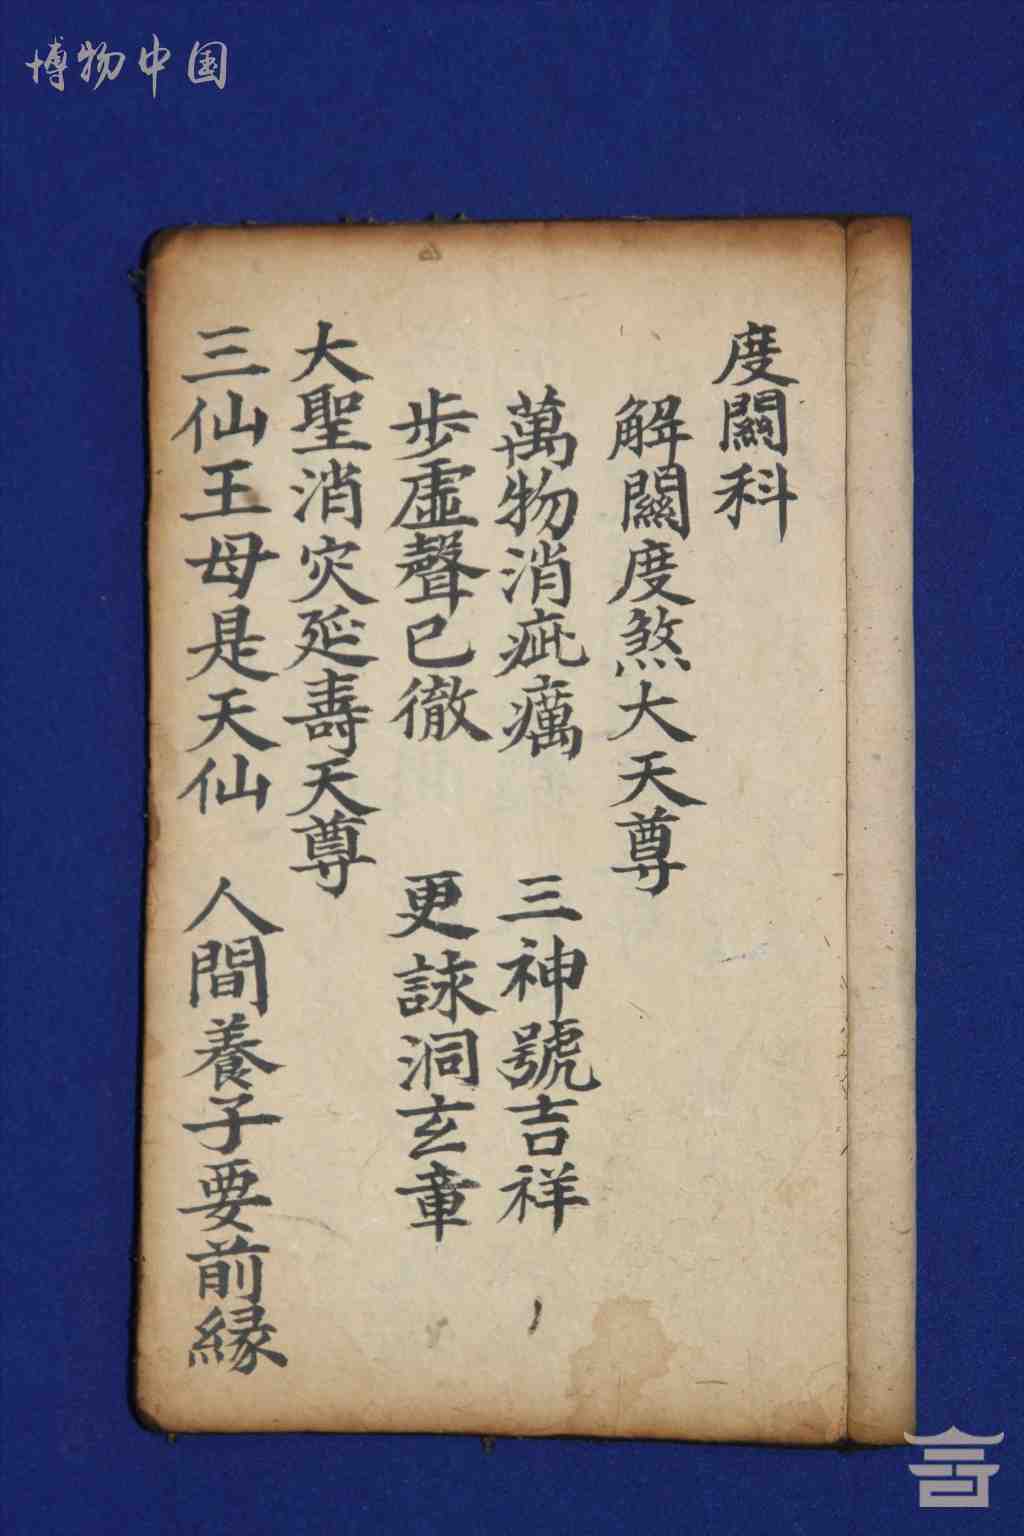 博物中国
度關科
解關度煞大天尊
萬物消疵癘 三神號吉祥
步虛聲已徹 更詠洞玄章
大聖消灾延壽天尊
三仙王母是天仙 人間養子要前緣